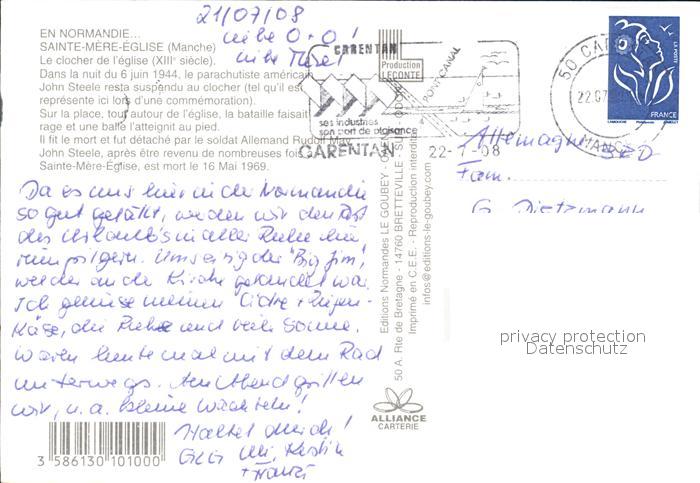 21/07/08
EN NORMANDIE...
SAINTE-MÈRE-ÉGLISE (Manche)
Le clocher de l'église (XIIIᵉ siècle).
Dans la nuit du 6 juin 1944, le parachutiste américain
John Steele resta suspendu au clocher (tel qu'il est
représenté ici lors d'une commémoration).
Sur la place, tout autour de l'église, la bataille faisait
rage et une balle l'atteignit au pied.
Il fit le mort et fut détaché par le soldat Allemand Rudolf May.
John Steele, après être revenu de nombreuses fois
Sainte-Mère-Église, est mort le 16 Mai 1969.
CARENTAN
Production
LECONTE
PORT CANAL
ses industries
son port de plaisance
CARENTAN 22-7-08
50 CARENTAN
22.07
MANCHE
LA POSTE
FRANCE
Allemagne
Fam.
G. Dietzmann
Da es uns hier in der Normandie
so gut gefällt, werden wir den Rest
des Urlaubs in aller Ruhe hier
Big Jim,
welcher an der Kirche gelandet war.
Ich genieße meinen Cidre + Ziegen-
Käse, die Ruhe und viel Sonne.
Waren heute mal mit dem Rad
unterwegs. Am Abend grillen
wir, u.a. kleine Wachteln!
Haltet durch!
Editions Normandes LE GOUBEY
50 A, Rte de Bretagne - 14760 BRETTEVILLE - SUR - ODON
Imprimé en C.E.E. - Reproduction interdite
infos@editions-le-goubey.com
ALLIANCE
CARTERIE
3 586130 101000
privacy protection
Datenschutz